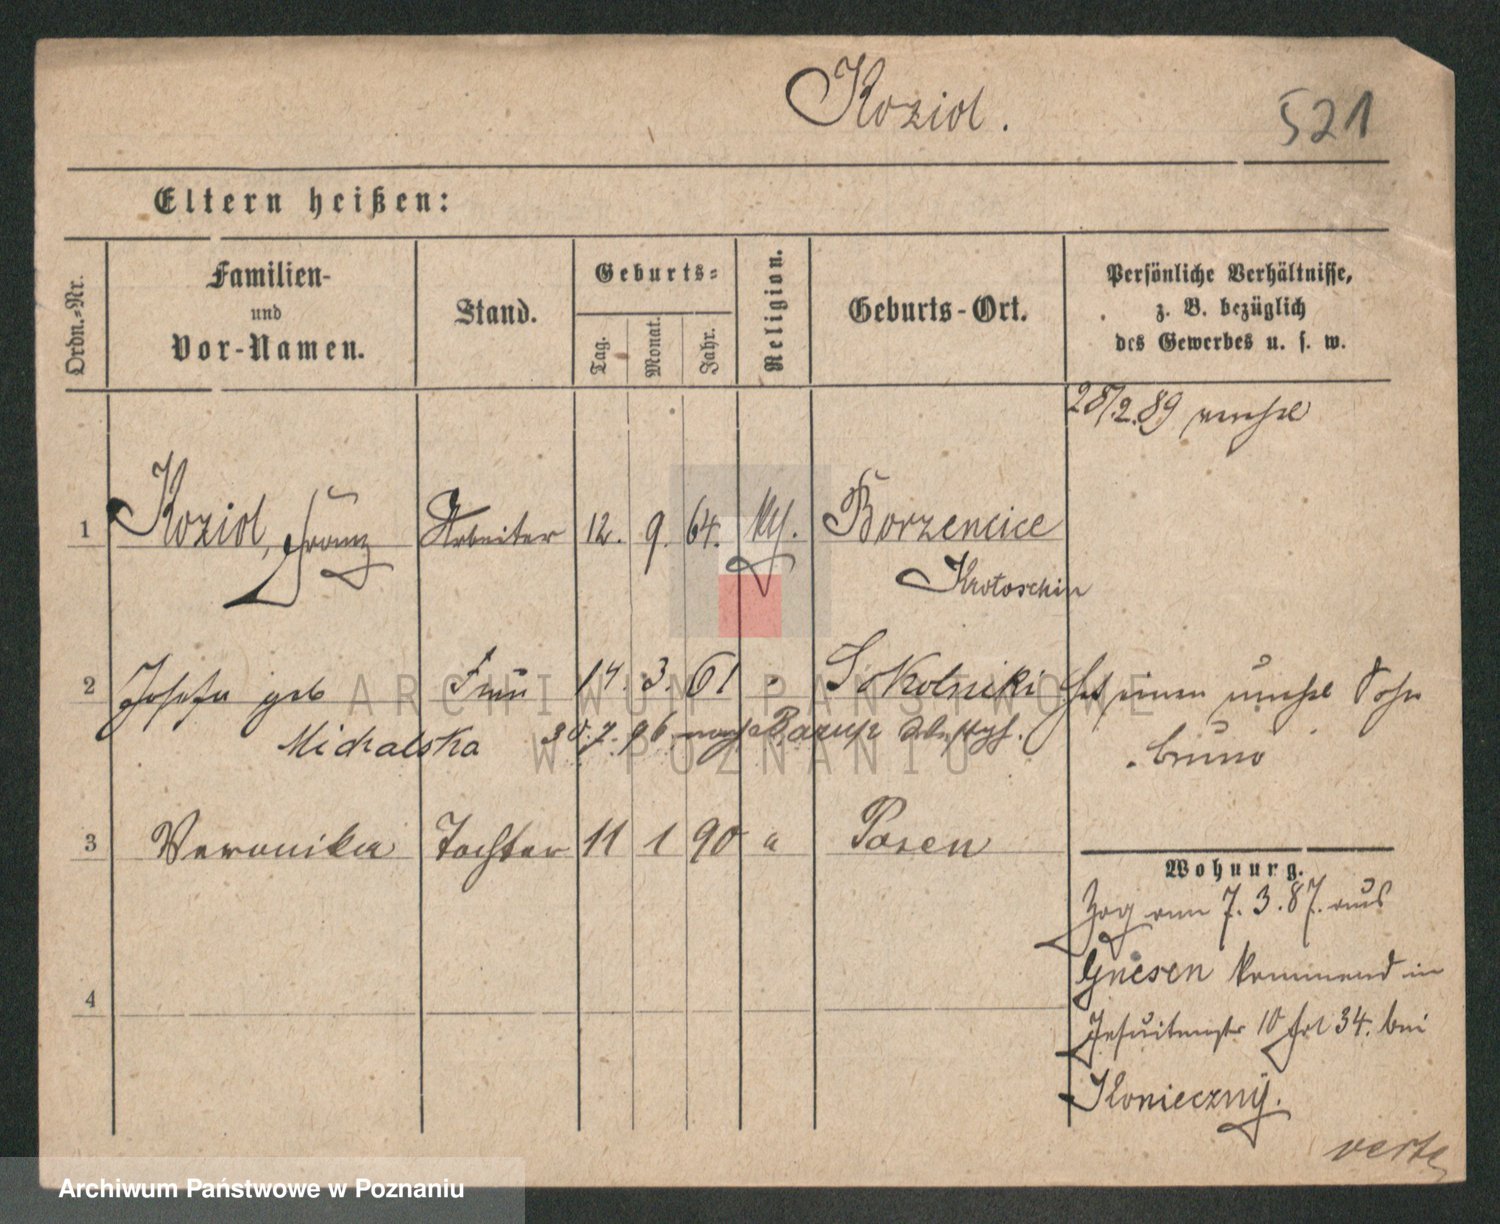 Koziol.
521
Eltern heißen:
Ordn.-Nr.
Familien-
und
Vor-Namen.
Stand.
Geburts-
Tag.
Monat.
Jahr.
Religion.
Geburts-Ort.
Persönliche Verhältnisse,
z. B. bezüglich
des Gewerbes u. s. w.
28/2.89
1 Koziol, Franz Arbeiter 12. 9. 64. Borzencice
Krotoschin
2 Josefa geb Frau 14. 3. 61 " Sokolniki Hat einen unehel Sohn
Michalska 30.7.96 nach
Bruno
3 Veronika Tochter 11 1 90 " Posen
Wohnung.
Zog am 7.3.87. aus
Gnesen kommend in
4
Jesuitenstr 10 frl 34. bei
Konieczny.
verte
ARCHIWUM PAŃSTWOWE
W POZNANIU
Archiwum Państwowe w Poznaniu